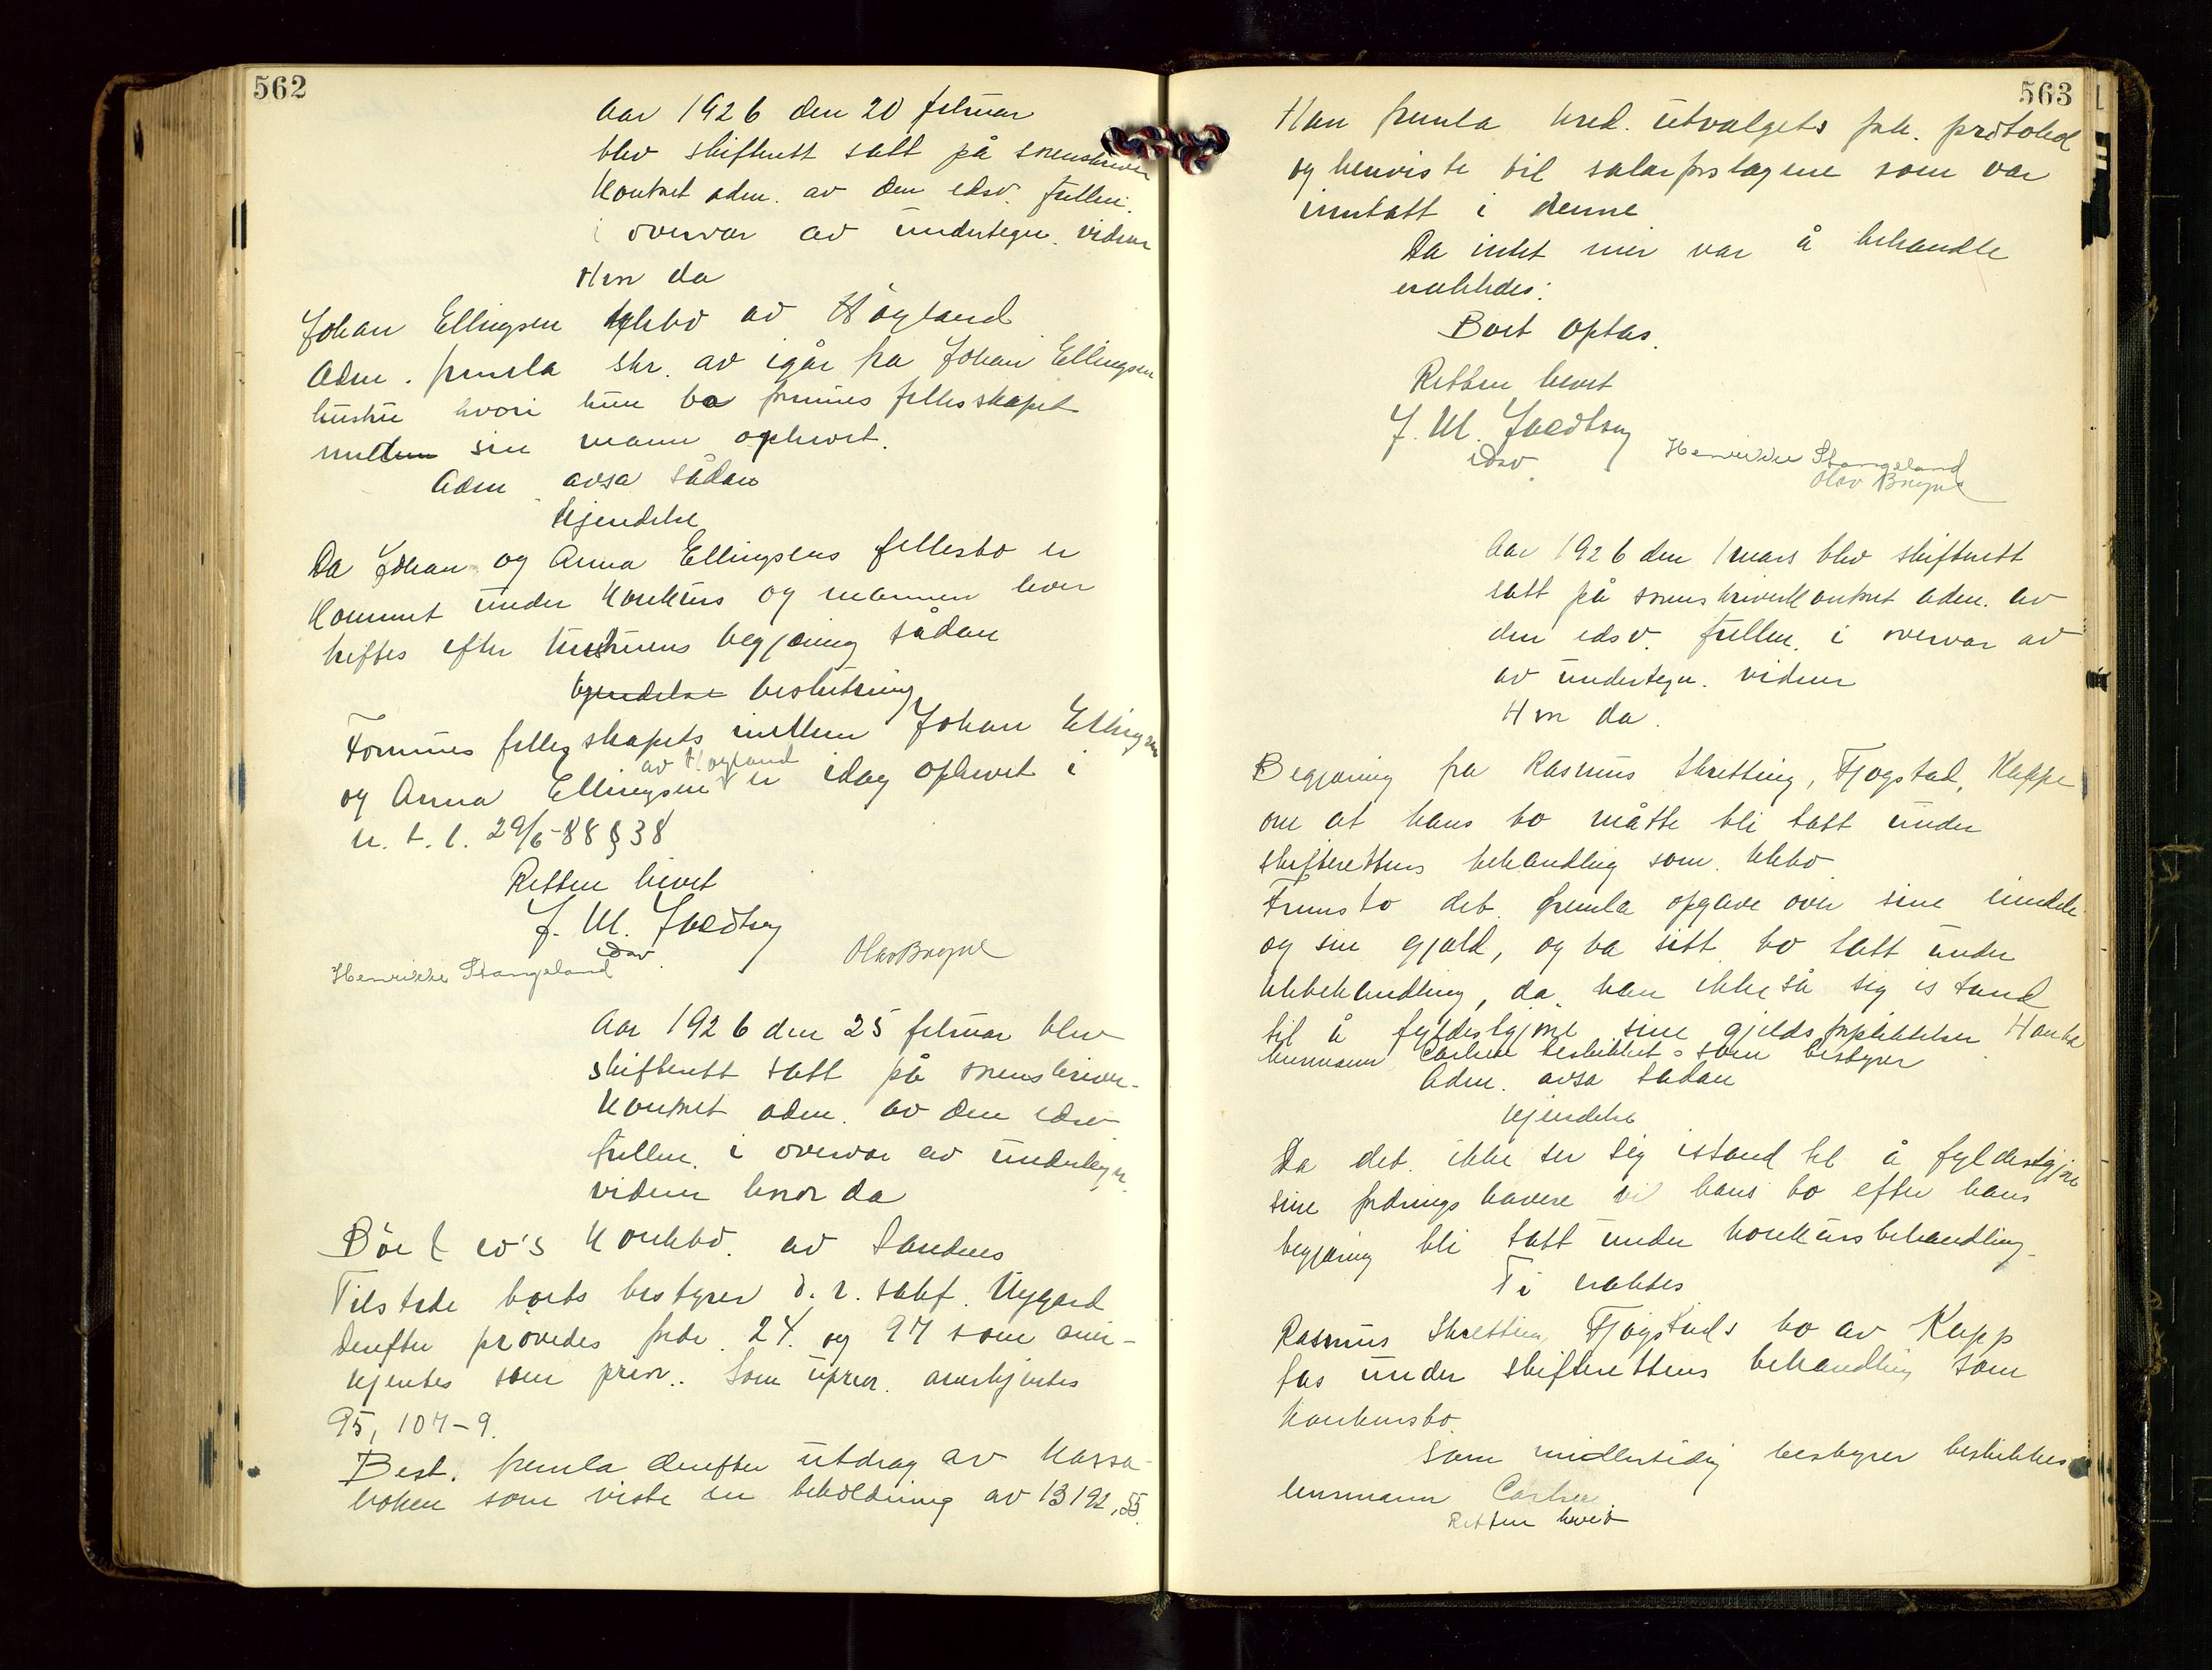 562
Aar 1926 den 20 februar
blev skifterett satt på sorenskriver
kontoret adm. av den edsv. fullm.
i overvær av undertegn. vidner
Hvor da
Johan Ellingsen kkbo av Høyland
Adm. fremla skr. av igår fra Johan Ellingsen
hustru hvori hun ba formues fellesskapet
mellem sin mann ophevet.
Adm avsa sådan
kjendelse
Da Johan og Anna Ellingsens fellesbo er
kommet under konkurs og mannen hver
treffes efter hustruens begjæring sådan
kjendelse beslutning
Formues fellesskapets mellem Johan Ellingsen
av Høyland
og Anna Ellingsen er idag ophevet i
h. t. l. 29/6-88 § 38
Retten hevet
J. M. Jaedtsny
edsv.
Henrikke Stangeland
Olav Bryne
Aar 1926 den 25 februar blev
skifterett satt på sorenskriver-
kontoret adm. av den edsv
fullm. i overvær av undertegn.
vidner hvor da
Böe & co's konkbo. av Sandnes
Tilstede boets bestyrer o. r. sakf. Nygård
Derefter prøvedes fordr. 24. og 97 som aner-
kjentes som prior.. Som uprior. anerkjentes
95, 107-9.
Best. fremla derefter utdrag av kassa-
boken som viste en beholdning av 13192,55.
563
Han fremla kred. utvalgets forh. protokol
og henviste til salærforslagene som var
inntatt i denne
Da intet mer var å behandle
erakledes:
Boet optas.
Retten hevet
J. M. Jaedtsny
edsv.
Henrikke Stangeland
Olav Bryne
Aar 1926 den 1 mars blev skifterett
satt på sorenskriverkontoret adm. av
den edsv. fullm. i overvær av
av undertegn. vidner
Hvor da.
Begjæring fra Rasmus Skretting, Fjogstad, Kleppe
om at hans bo måtte bli tatt under
skifterettens behandling som kkbo
Fremsto deb. fremla opgave over sine eiendele
og sin gjæld, og ba sitt bo tatt under
kkbehandling, da han ikke så sig istand
til å fyldestgjøre sine gjeldsforpliktelser Han ba
lensmann Carlsen beskikket som bestyrer
Adm. avsa sådan
kjendelse
Da deb. ikke ser sig istand til å fyldestgjøre
sine fordringshavere vil hans bo efter hans
begjæring bli tatt under konkursbehandling.
Ti eraktes
Rasmus Skretting Fjogstads bo av Klepp
tas under skifterettens behandling som
konkursbo.
Som midlertidig bestyrer beskikkes
lensmann Carlsen.
Retten hevet